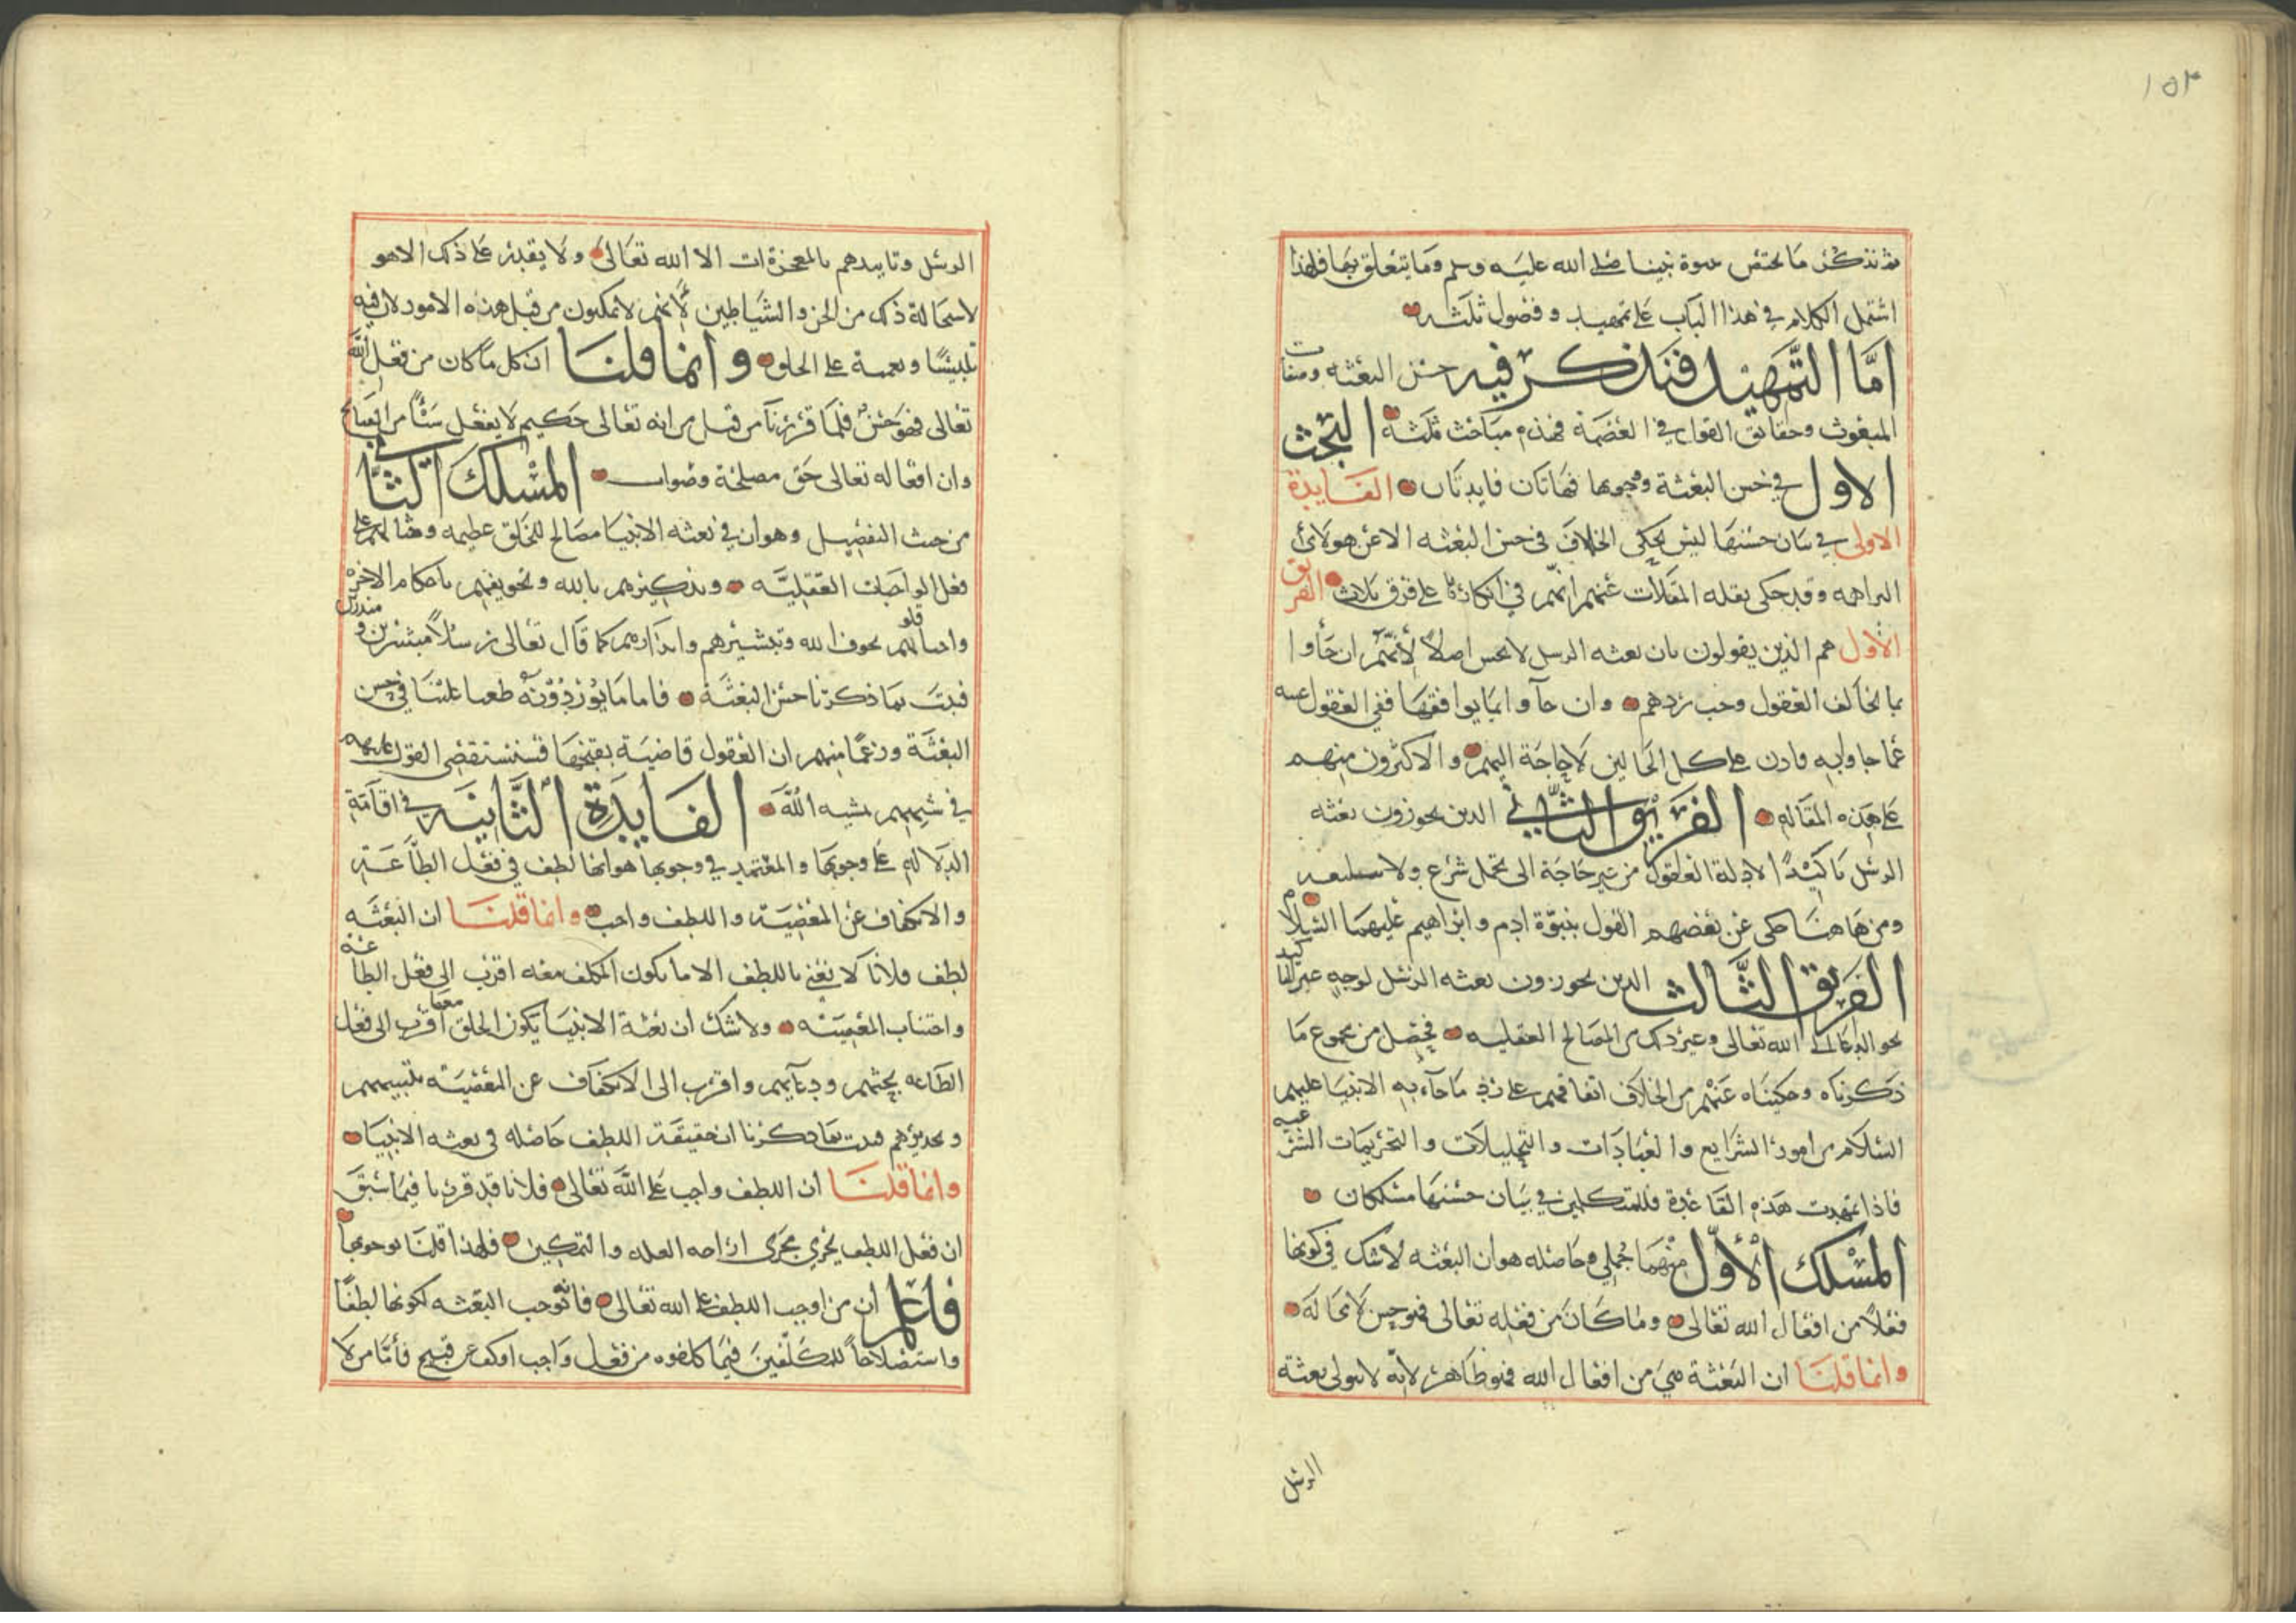 ١٥٢
ثم نذكر ما يختص بنبوة نبينا صلى الله عليه وسلم وما يتعلق بها فلهذا
اشتمل الكلام في هذا الباب على تمهيد وفصول ثلثه
امّا التّمهيد فنذكر فيه حسن البعثه وصفات
المبعوث وحقائق القول في العصمة فهذه مباحث ثلثة البحث
الاول في حسن البعثة ووجوبها فهاتان فايدتان الفايدة
الاولى في بيان حسنها ليس يحكى الخلاف في حسن البعثه الا عن هولائ
البراهمه وقد حكى نقله المقالات عنهم انهم في انكارها على فرق ثلاث الفريق
الاول هم الذين يقولون بان بعثه الرسل لا تحس اصلا لأنهم ان جاوا
بما يخالف العقول وجب ردهم وان جآوا بما يوافقها ففي العقول غنيه
عما جاوا به فاذن على كل الحالين لا حاجة اليهم والاكثرون منهم
على هذه المقاله الفريق الثاني الذين يجوزون بعثه
الرسل تاكيدًا لادلة العقول من غير حاجة الى تحمل شرع ولا
ومن هاهنا حكى عن بعضهم القول بنبوّة ادم وابراهيم عليهما السلام
الفريق الثّالث الذين يجوزون بعثه الرسل لوجه غير التاكيد
نحو الدعا الى الله تعالى وغير ذلك من المصالح العقليه فحصل من مجموع ما
ذكرناه وحكيناه عنهم من الخلاف اتفاقهم على رد ما جآء به الانبيا عليهم
السلام من امور الشرايع والعبادات والتحليلات والتحريمات الشرعيه
فاذا تمهدت هذه القاعدة فللمتكلمين في بيان حسنها مسلكان
المسلك الأوّل منهما جملي وحاصله هو ان البعثه لا شك في كونها
فعلاً من افعال الله تعالى وما كان من فعله تعالى فهو حسن لا محالة
وانما قلنا ان البعثة هي من افعال الله فهو ظاهر لانه لا يتولى بعثة
الرسل
الرسل وتاييدهم بالمعجزات الا الله تعالى ولا يقدر على ذلك الا هو
لاستحالة ذلك من الجن والشياطين لأنهم لا يمكنون من قبل هذه الامور لان فيه
تلبيسًا وتعمية على الخلق وانما قلنا ان كل ما كان من فعل الله
تعالى فهو حسن فلما قررنا من قبل من انه تعالى حكيم لا يفعل شيئًا من القبائح
وان افعاله تعالى حق مصلحة وصواب المسلك الثاني
من حيث التفصيل وهو ان في بعثه الانبيا مصالح للخلق عظيمه وحثا لهم على
فعل الواجبات العقليّه وتذكيرهم بالله وتخويفهم باحكام الاخره
واحيا قلوبهم بخوف الله وتبشيرهم وانذارهم كما قال تعالى رسلاً مبشرين ومنذرين
فثبت بما ذكرنا حسن البعثة فاما ما يوردونه طعنا علينا في حسن
البعثة وزعمًا منهم ان العقول قاضية بقبحها فسنستقصي القول عليهم
في شبههم بمشيه الله الفايدة الثّانية في اقامة
الدلاله على وجوبها والمعتمد في وجوبها هو انها لطف في فعل الطّاعة
والانكفاف عن المعصية واللطف واجب وانما قلنا ان البعثه
لطف فلانا لا نعني باللطف الا ما يكون المكلف معه اقرب الى فعل الطاعه
واجتناب المعصيه ولا شك ان بعثة الانبيا يكون الخلق معها اقرب الى فعل
الطاعه بحثهم ودعآيهم واقرب الى الانكفاف عن المعصيه بتنبيههم
وتحذيرهم فثبت بما ذكرنا ان حقيقة اللطف حاصله في بعثه الانبيا
وانما قلنا ان اللطف واجب على الله تعالى فلانا قد قررنا فيما سبق
ان فعل اللطف يجري مجرى ازاحه العله والتمكين فلهذا قلنا بوجوبها
فاعلم ان من اوجب اللطف على الله تعالى فانه يوجب البعثه لكونها لطفًا
واستصلاحًا للمكلّفين فيما كلفوه من فعل واجب او كف عن قبيح فأمّا من لا